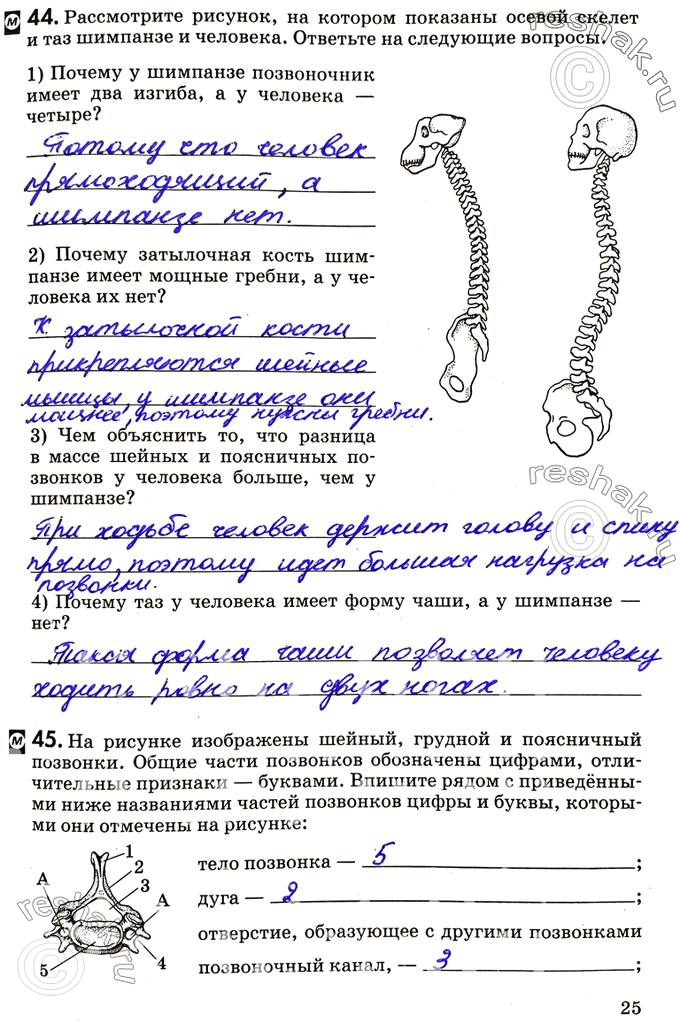 м 44. Рассмотрите рисунок, на котором показаны осевой скелет
и таз шимпанзе и человека. Ответьте на следующие вопросы.
1) Почему у шимпанзе позвоночник
имеет два изгиба, а у человека —
четыре?
Потому что человек
прямоходящий, а
шимпанзе нет.
2) Почему затылочная кость шим-
панзе имеет мощные гребни, а у че-
ловека их нет?
К затылочной кости
прикрепляются шейные
мышцы, у шимпанзе они
мощнее, поэтому нужны гребни.
3) Чем объяснить то, что разница
в массе шейных и поясничных по-
звонков у человека больше, чем у
шимпанзе?
При ходьбе человек держит голову и спину
прямо, поэтому идет большая нагрузка на
позвонки.
4) Почему таз у человека имеет форму чаши, а у шимпанзе —
нет?
Такая форма чаши позволяет человеку
ходить ровно на двух ногах.
м 45. На рисунке изображены шейный, грудной и поясничный
позвонки. Общие части позвонков обозначены цифрами, отли-
чительные признаки — буквами. Впишите рядом с приведённы-
ми ниже названиями частей позвонков цифры и буквы, которы-
ми они отмечены на рисунке:
1
2
3
А
А
5
4
тело позвонка — 5 ;
дуга — 2 ;
отверстие, образующее с другими позвонками
позвоночный канал, — 3 ;
25
reshak.ru
reshak.ru
reshak.ru